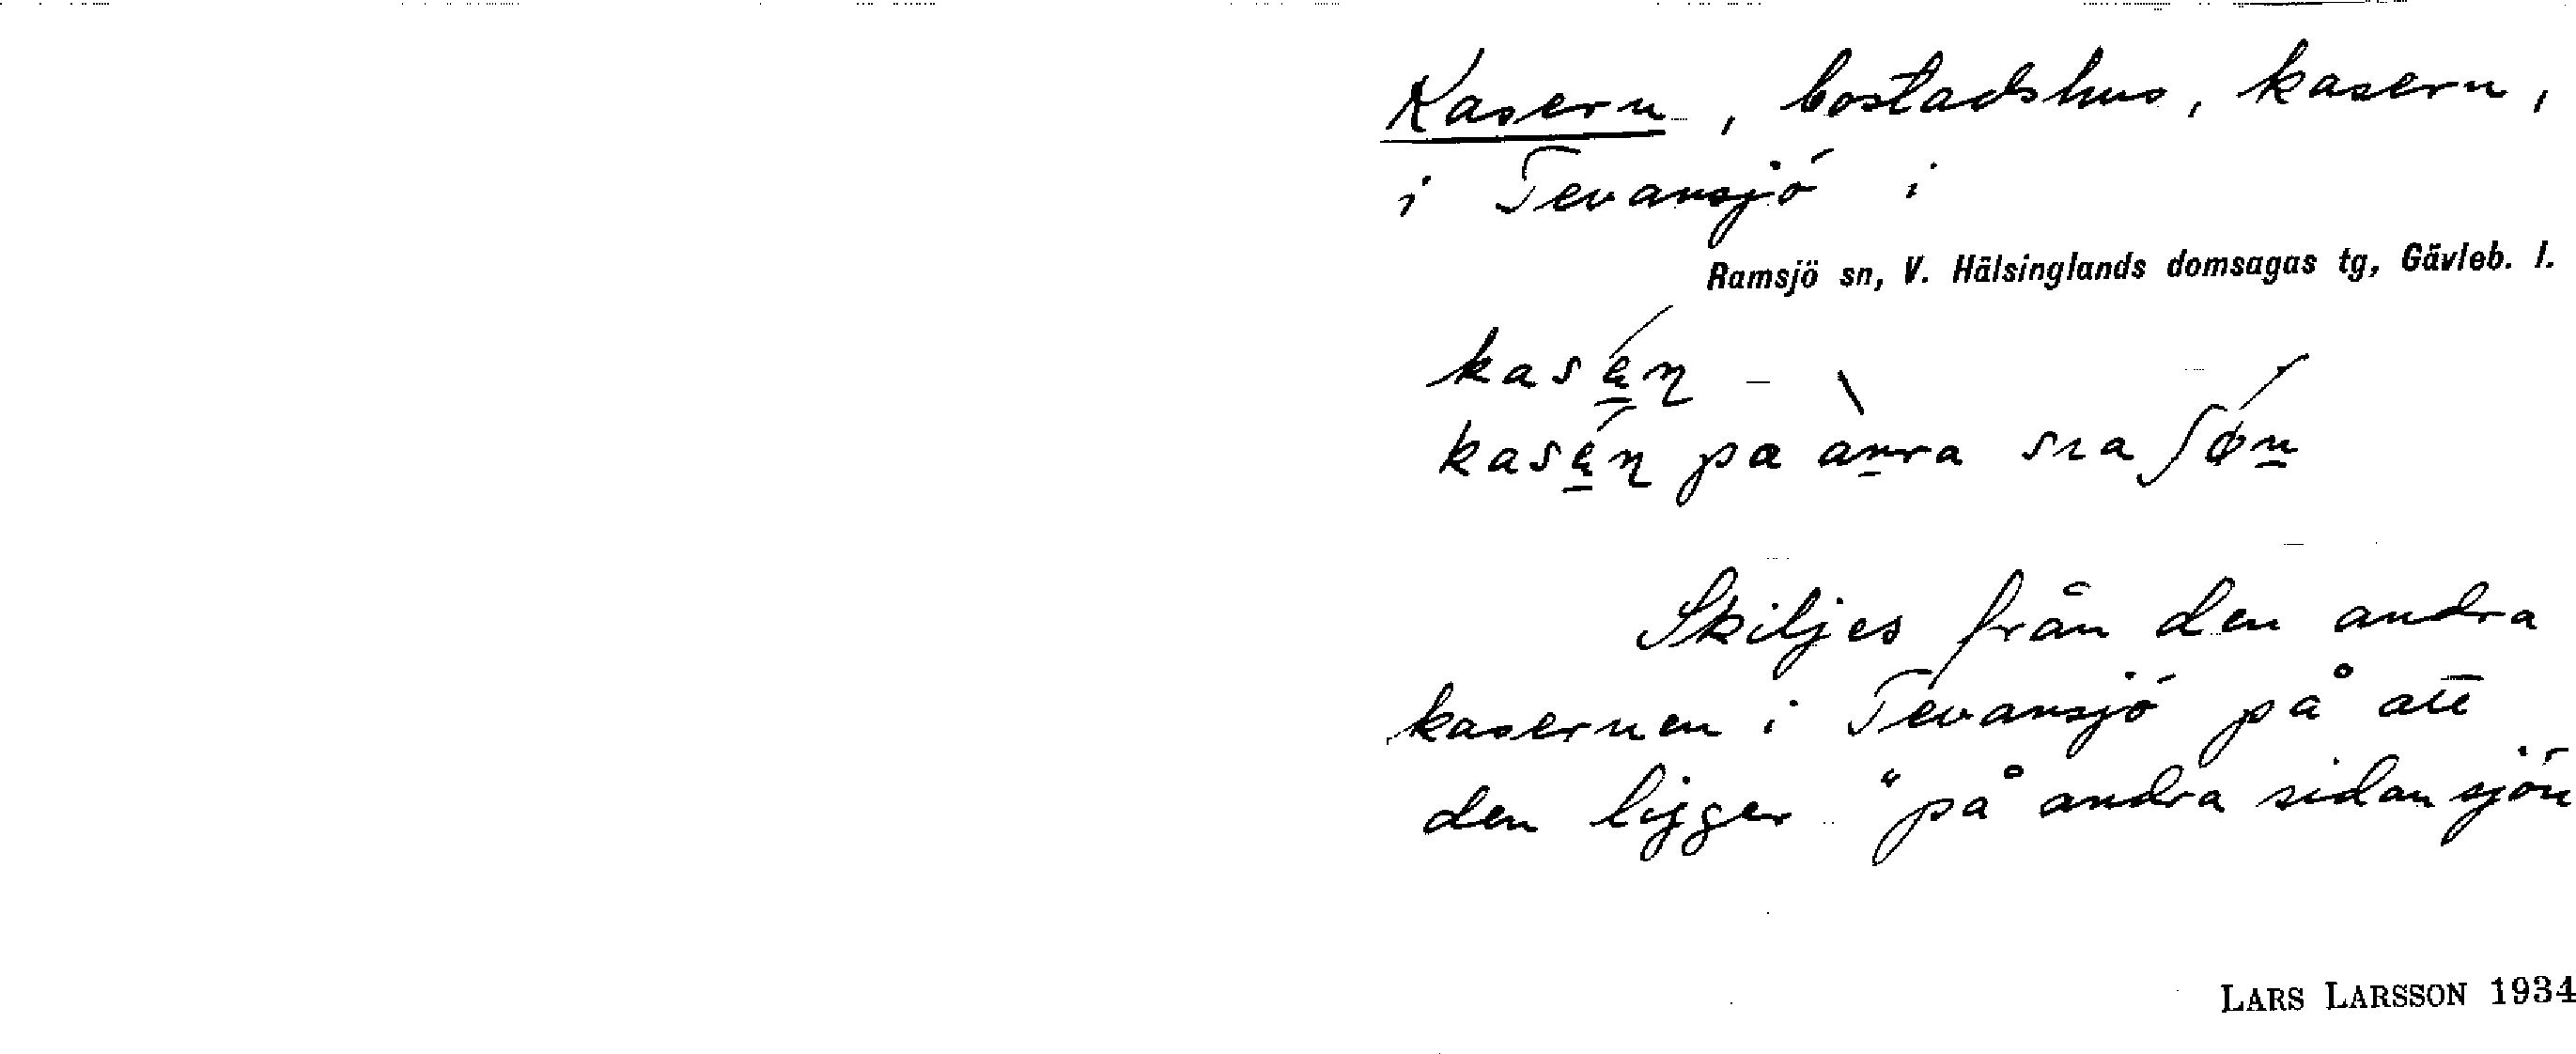 Kasern, bostadshus, kasern,
i Tevansjö i
Ramsjö sn, V. Hälsinglands domsagas tg, Gävleb. l.
kasęń̠ -
pa anra sɩa ʃøn
Skiljes från den andra
kasernen i Tevansjö på att
den ligger "på andra sidan sjön
LARS LARSSON 1934